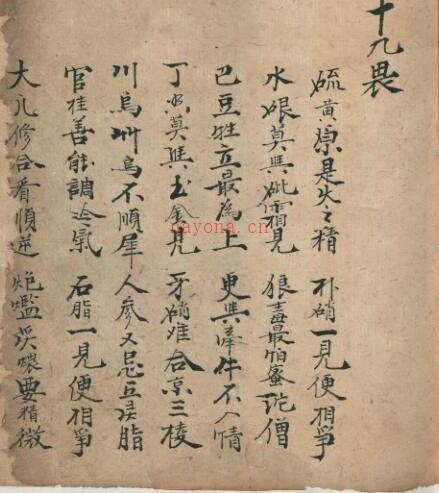 十九畏
硫黄原是火之精 朴硝一見便相爭
水銀莫與砒霜相見 狼毒最怕蜜陀僧
巴豆性立最為上 更與牽牛不入情
丁香莫與玉金見 牙硝难合京三棱
川烏草烏不順犀 人參又忌五灵脂
官桂善能調冷氣 石脂一見便相爭
大凡修合看順逆 炮爁炙煿要精微
dayona.cn